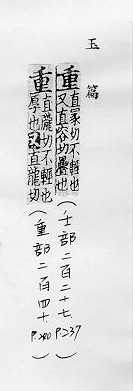 玉篇
重 直冢切不輕也
又直容切疊也
(壬部二百二十七 P.237)
重 直隴切不輕也
厚也又直龍切
(重部二百四十)